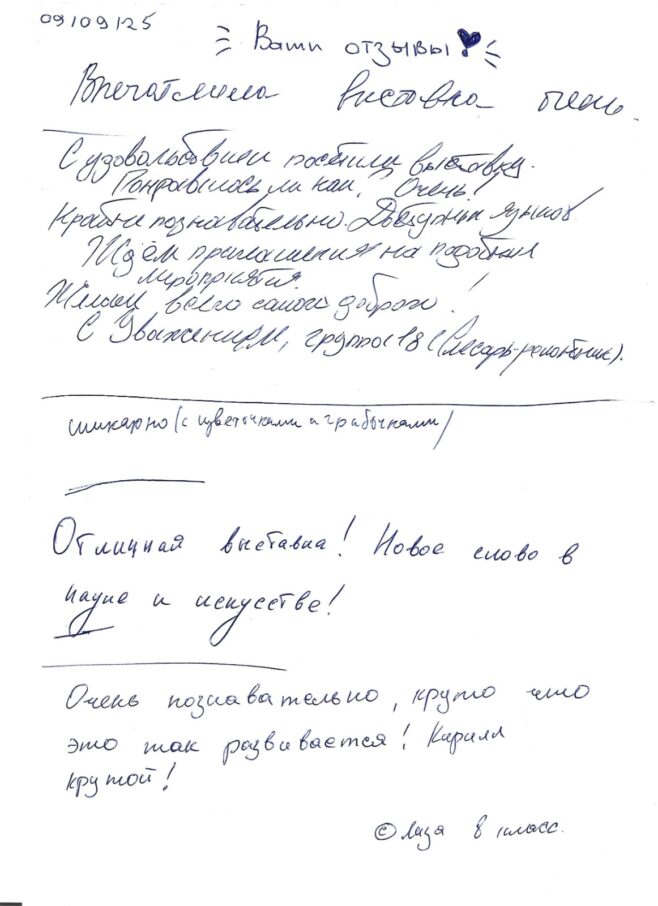 09/09/25
Ваши отзывы!
Впечатлила выставка очень.
С удовольствием посетили выставку.
Понравилось ли нам? Очень!
Крайне познавательно. Доступным языком
Ждём приглашения на подобные
мероприятия.
Желаем всего самого доброго!
С Уважением, группа 18 (Слесарь-ремонтник).
шикарно (с цветочками и грибочками)
Отличная выставка! Новое слово в
науке и искусстве!
Очень познавательно, круто что
это так развивается! Кирилл
крутой!
© Лиза 8 класс.